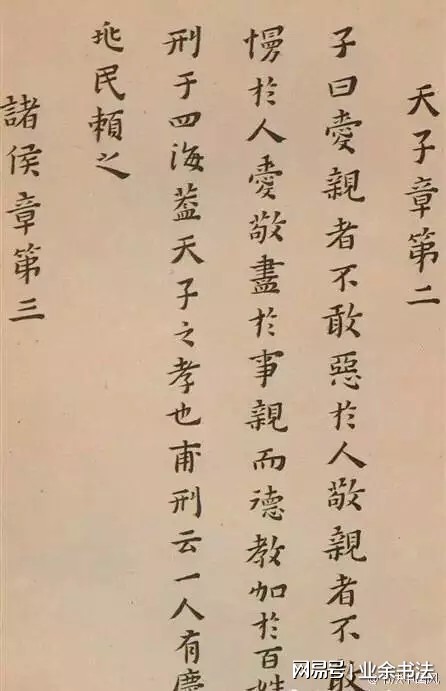 天子章第二
子曰愛親者不敢惡於人敬親者不敢
慢於人愛敬盡於事親而德教加於百姓
刑于四海蓋天子之孝也甫刑云一人有慶
兆民賴之
諸侯章第三
网易号 | 业余书法